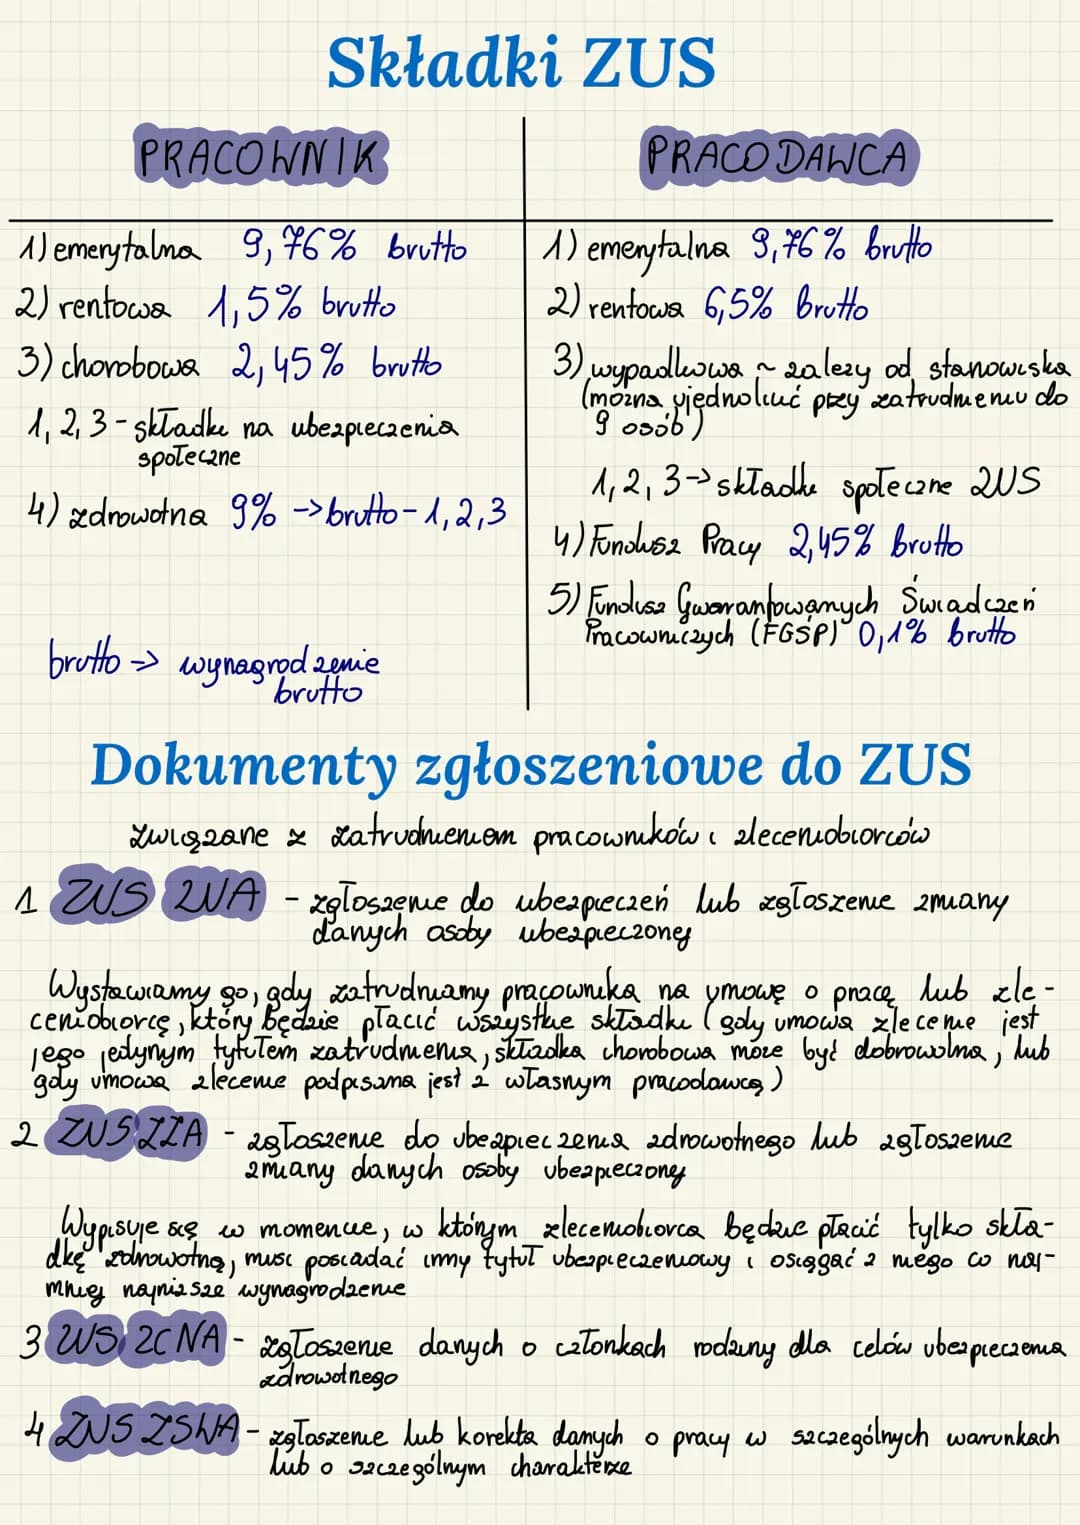 Składki ZUS
PRACOWNIK
1) emerytalna 9,76% brutto
2) rentowa 1,5% brutto
3) chorobowa 2,45% brutto
1, 2, 3 - składki na ubezpieczenia
społeczne
4) zdrowotna 9% -> brutto - 1,2,3
brutto -> wynagrodzenie
brutto
PRACODAWCA
1) emerytalna 9,76% brutto
2) rentowa 6,5% brutto
3) wypadkowa ~ zależy od stanowiska
(można ujednolicić przy zatrudnieniu do
9 osób)
1, 2, 3 -> składki społeczne ZUS
4) Fundusz Pracy 2,45% brutto
5) Fundusz Gwarantowanych Świadczeń
Pracowniczych (FGŚP) 0,1% brutto
Dokumenty zgłoszeniowe do ZUS
związane z zatrudnieniem pracowników i zleceniobiorców
1 ZUS ZUA - zgłoszenie do ubezpieczeń lub zgłoszenie zmiany
danych osoby ubezpieczonej
Wystawiamy go, gdy zatrudniamy pracownika na umowę o pracę lub zle-
ceniobiorcę, który będzie płacić wszystkie składki (gdy umowa zlecenie jest
jego jedynym tytułem zatrudnienia, składka chorobowa może być dobrowolna, lub
gdy umowa zlecenie podpisana jest z własnym pracodawcą)
2 ZUS ZZA - zgłoszenie do ubezpieczenia zdrowotnego lub zgłoszenie
zmiany danych osoby ubezpieczonej
Wypisuje się w momencie, w którym zleceniobiorca będzie płacić tylko skła-
dkę zdrowotną, musi posiadać inny tytuł ubezpieczeniowy i osiągać z niego co naj-
mniej najniższe wynagrodzenie
3 ZUS ZCNA - zgłoszenie danych o członkach rodziny dla celów ubezpieczenia
zdrowotnego
4 ZUS ZSWA - zgłoszenie lub korekta danych o pracy w szczególnych warunkach
lub o szczególnym charakterze